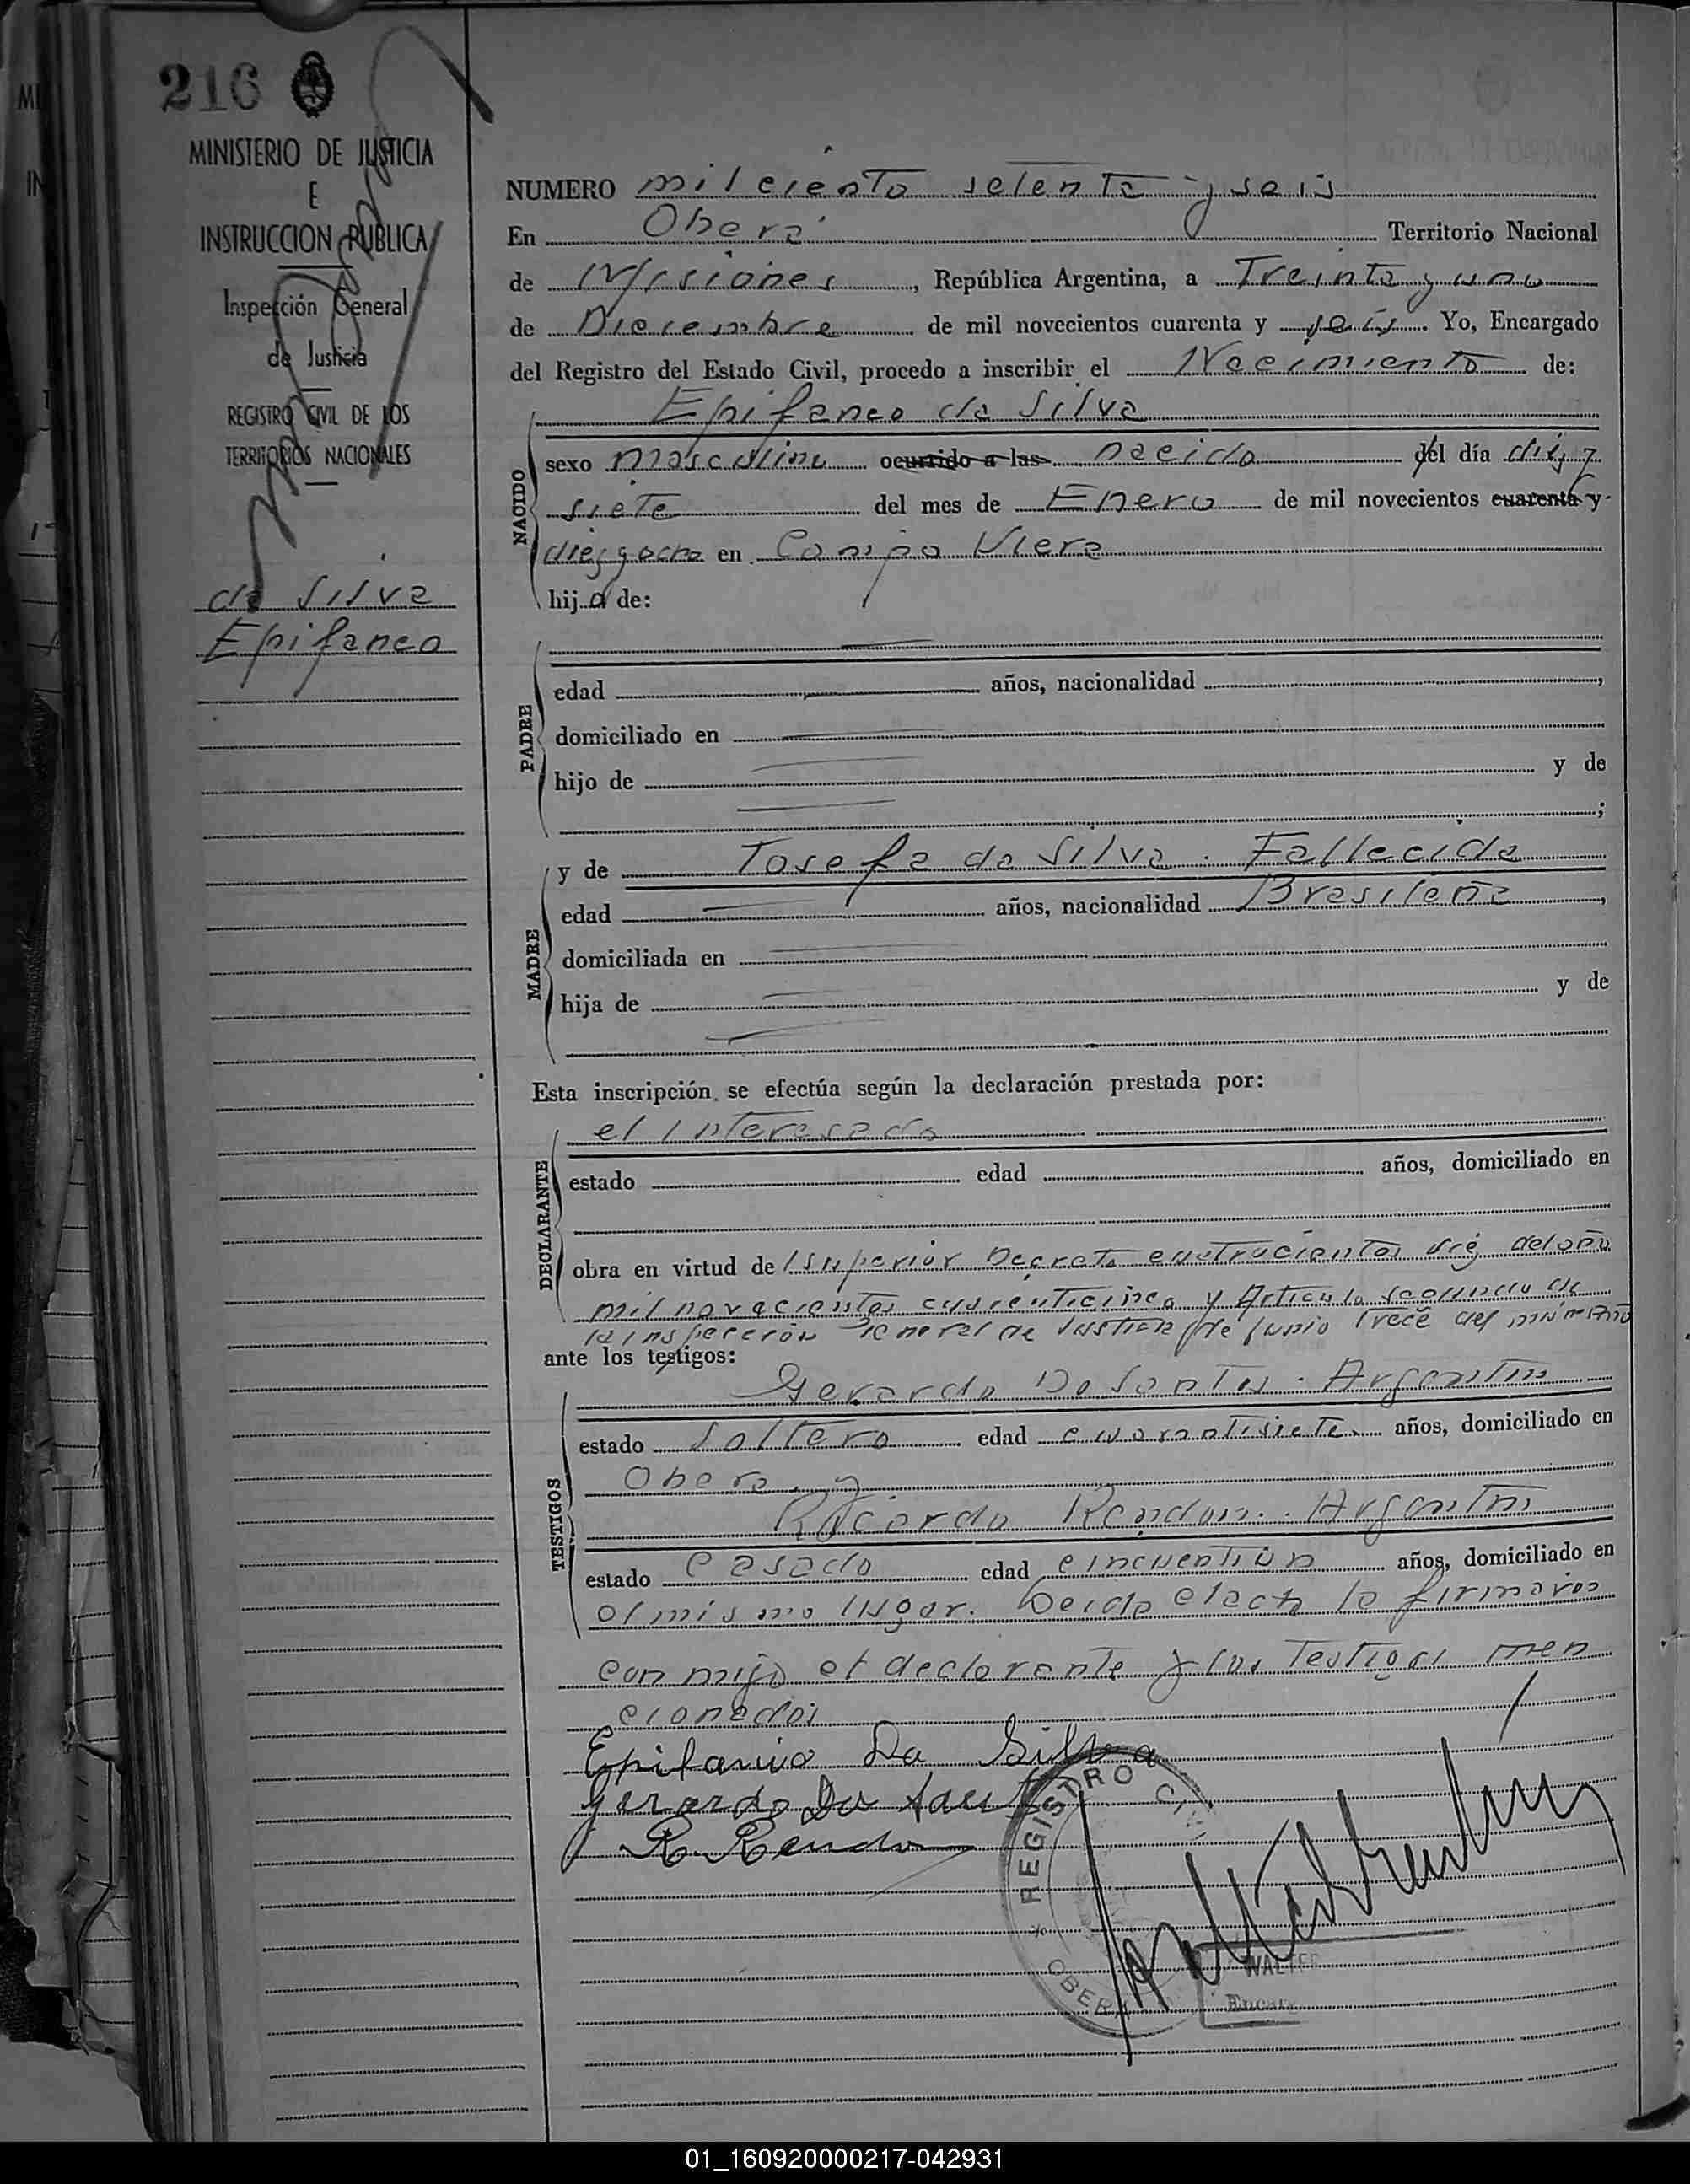 216
MINISTERIO DE JUSTICIA
E
INSTRUCCION PUBLICA
Inspección General
de Justicia
REGISTRO CIVIL DE LOS
TERRITORIOS NACIONALES
da Silva
Epifaneo
NUMERO mil ciento setenta y seis
En Oberá Territorio Nacional
de Misiones, República Argentina, a Treinta y uno
de Diciembre de mil novecientos cuarenta y seis. Yo, Encargado
del Registro del Estado Civil, procedo a inscribir el Nacimiento de:
Epifaneo da Silva
NACIDO
sexo Masculino ocurrido a las nacido del día diez y
siete del mes de Enero de mil novecientos cuarenta y
diez y ocho en Campo Viera
hijo de:
PADRE
edad años, nacionalidad ,
domiciliado en
hijo de y de
;
MADRE
y de Josefa da Silva. Fallecida
edad años, nacionalidad Brasileña,
domiciliada en
hija de y de
Esta inscripción se efectúa según la declaración prestada por:
DECLARANTE
el Interesado
estado edad años, domiciliado en
obra en virtud de Superior Decreto cuatrocientos del año
mil novecientos cuarenticinco y Articulo segundo de
la Inspección General de Justicia de Junio trece del mismo año
ante los testigos:
TESTIGOS
Gerardo Do Santos. Argentino
estado Soltero edad cuarentisiete años, domiciliado en
Oberá y
Ricardo Rendon. Argentino
estado Casado edad cincuentiún años, domiciliado en
el mismo lugar. Leida el acta la firmaron
conmigo el declarante y los Testigos men
cionados
Epifanio Da Silva
Gerardo Do Sant
R. Rendon
REGISTRO CIVIL
OBERA
WALTER
Encar
01_160920000217-042931